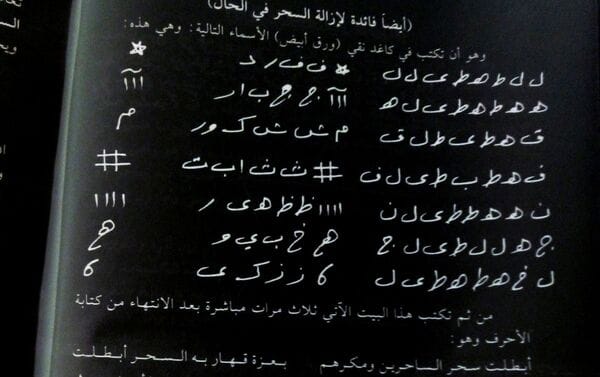 (أيضاً فائدة لإزالة السحر في الحال)
وهو أن تكتب في كاغد نقي (ورق أبيض) الأسماء التالية: وهي هذه:
ل ل ط ه ط ى ل ل ☆ ف ف ر د ☆
ه ه ط ه ط ى ل ه ااا ج ج ب ا ر ااا
ق ه ط ى ط ل ق م ش ش ك و ر م
ف ه ط ب ط ى ل ف # ث ث ا ب ت #
ن ه ه ط ط ى ل ن اااا ظ ظ ه ى ر اااا
ج ه ل ل ط ى ل ج ه خ ب ي و ه
ل خ ه ط ه ط ى ل 6 ز ز ك ى 6
من ثم تكتب هذا البيت الآتي ثلاث مرات مباشرة بعد الانتهاء من كتابة
الأحرف وهو:
أبطلت سحر الساحرين ومكرهم بعزة قهار به السحر أبطلت